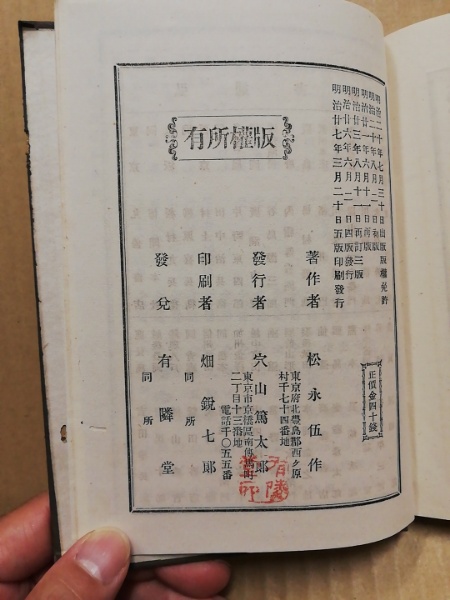 明治二十年七月三十日出版版權免許
明治二十年八月 日初版
明治 年六月十 日再版
明治廿三年八月十一日再訂三版
明治廿六年六月二日四版發行
明治廿七年三月二十日五版印刷發行
正價金四十錢
版權所有
著作者 松永伍作
東京府北豊島郡西ヶ原
村千七十四番地
發行者 穴山篤太郎
東京市京橋區南傳馬町
二丁目十三番地
電話千〇五五番
印刷者 畑鋭七郎
同所
發兌 有隣堂
同所
有隣堂印